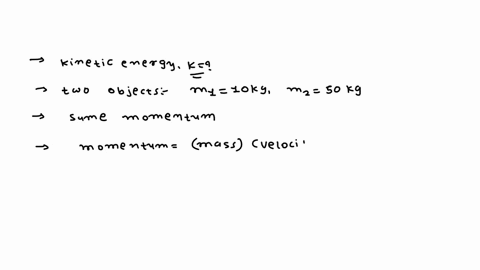 → kinetic energy, k=?
→ two objects:- m1 = 10kg, m2 = 50 kg
→ sume momentum
→ momentum = (mass) (veloci